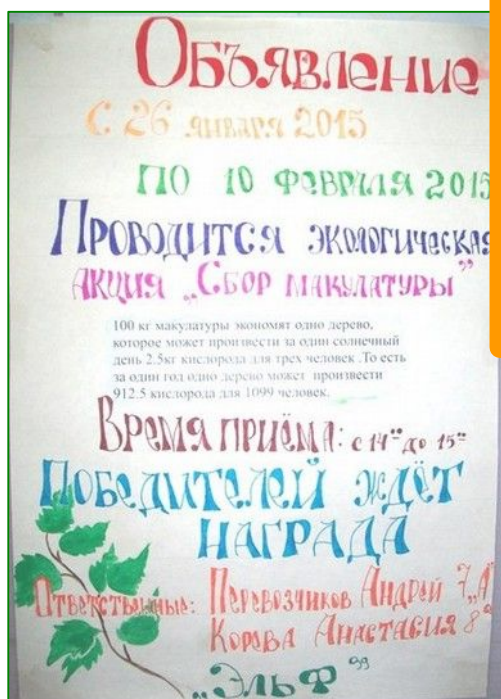 Объявление
С 26 января 2015
по 10 февраля 2015
Проводится экологическая
акция „Сбор макулатуры"
100 кг макулатуры экономят одно дерево,
которое может произвести за один солнечный
день 2.5кг кислорода для трех человек .То есть
за один год одно дерево может произвести
912.5 кислорода для 1099 человек.
Время приёма: с 14⁰⁰ до 15⁰⁰
Победителей ждёт
награда
Ответственные: Перевозчиков Андрей 7„А"
Корева Анастасия 8
„Эльф"